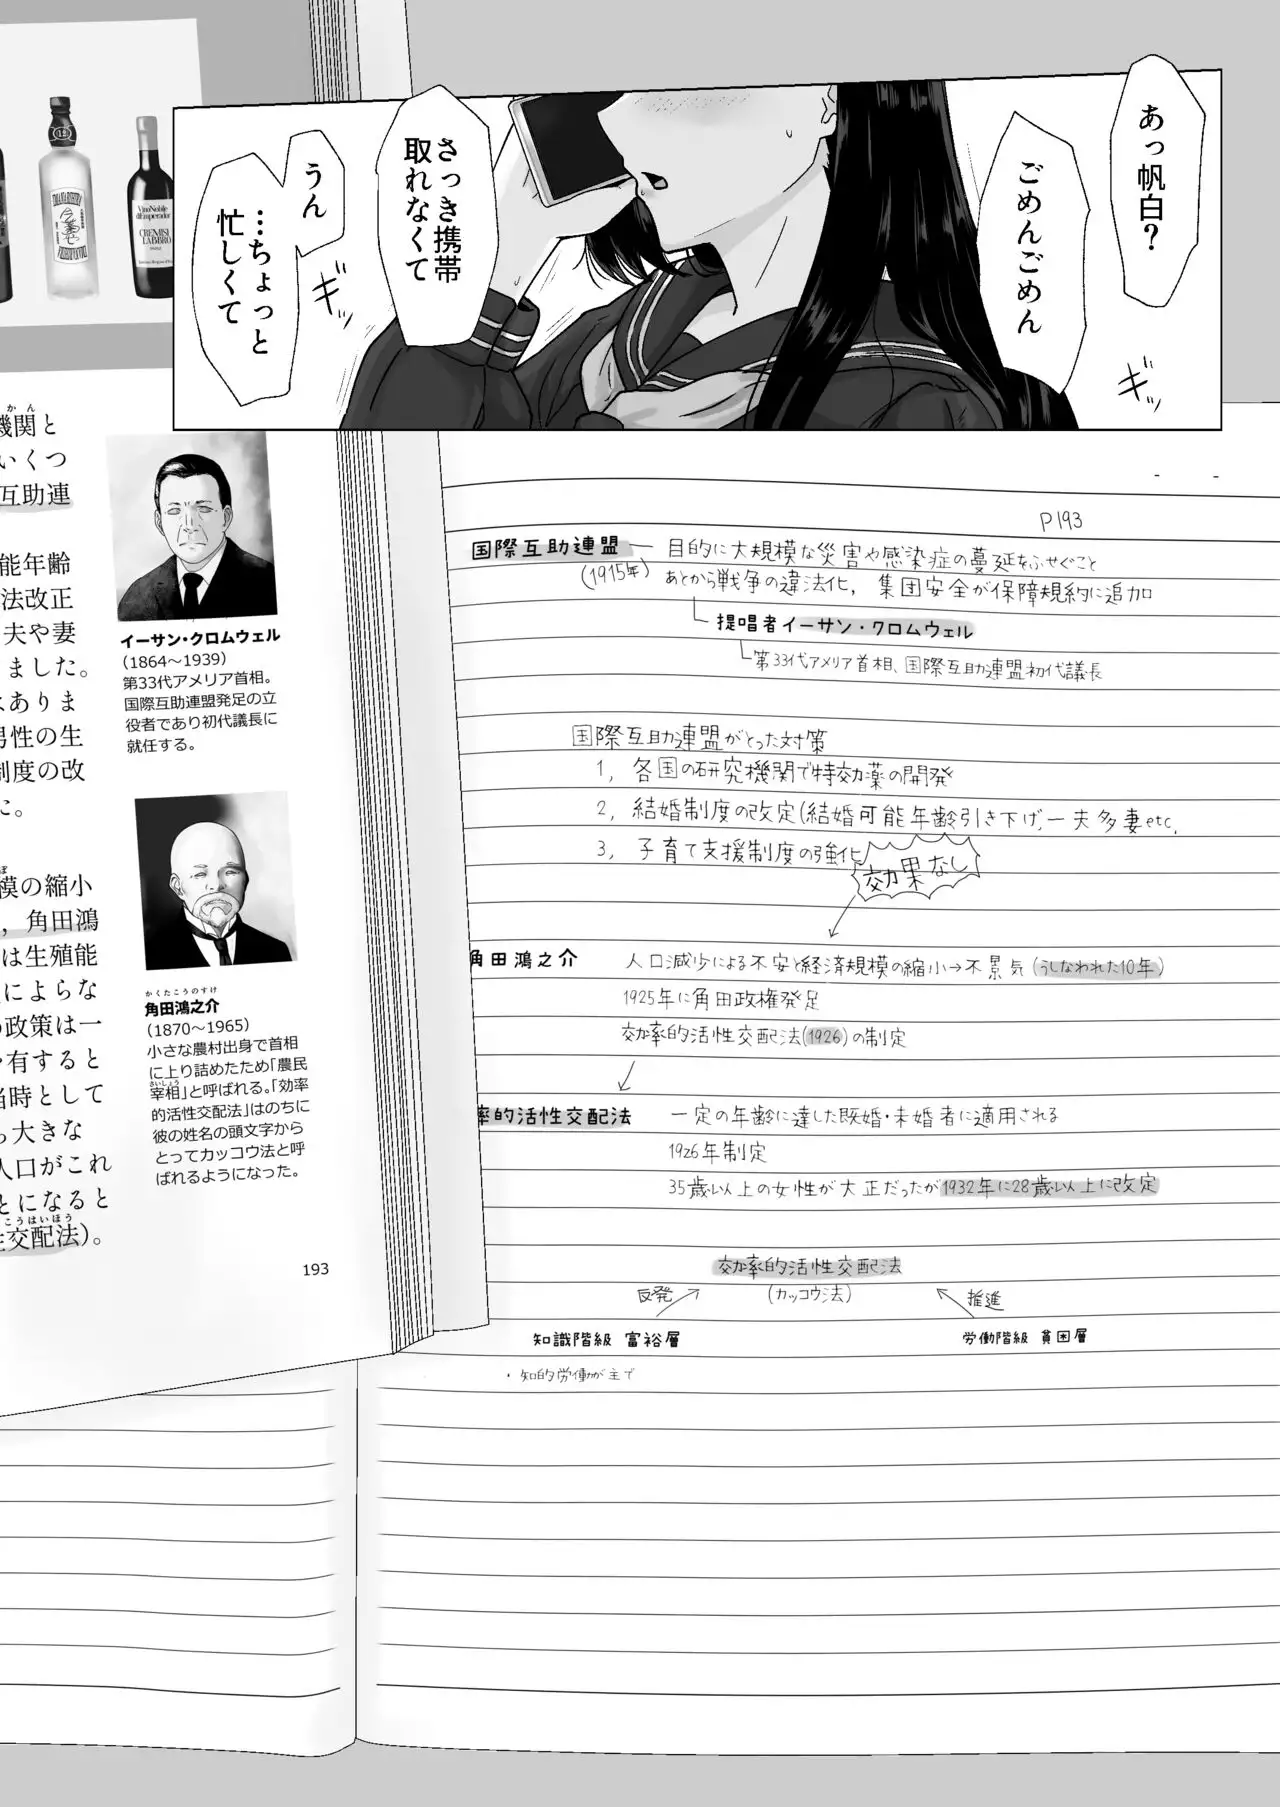 あっ帆白？
ごめんごめん
さっき携帯
取れなくて
うん
…ちょっと
忙しくて
ギッ
ギッ
12
VinoNobile
d'Emperador
CREMISI
LABBRO
かん
機関と
いくつ
互助連
能年齢
法改正
夫や妻
りました。
はありま
男性の生
制度の改
た。
ぼ
模の縮小
，角田鴻
は生殖能
によらな
の政策は一
有すると
当時として
大きな
人口がこれ
とになると
こうはいほう
性交配法）。
イーサン・クロムウェル
（1864～1939）
第33代アメリア首相。
国際互助連盟発足の立
役者であり初代議長に
就任する。
かくたこうのすけ
角田鴻之介
（1870～1965）
小さな農村出身で首相
に上り詰めたため「農民
さいしょう
宰相」と呼ばれる。「効率
的活性交配法」はのちに
彼の姓名の頭文字から
とってカッコウ法と呼
ばれるようになった。
193
P193
国際互助連盟 ― 目的に大規模な災害や感染症の蔓延をふせぐこと
（1915年） あとから戦争の違法化，集団安全が保障規約に追加
提唱者イーサン・クロムウェル
第33代アメリア首相、国際互助連盟初代議長
国際互助連盟がとった対策
1，各国の研究機関で特効薬の開発
2，結婚制度の改定（結婚可能年齢引き下げ，一夫多妻etc，
3，子育て支援制度の強化
効果なし
角田鴻之介 人口減少による不安と経済規模の縮小→不景気（うしなわれた10年）
1925年に角田政権発足
効率的活性交配法（1926）の制定
率的活性交配法 一定の年齢に達した既婚・未婚者に適用される
1926年制定
35歳以上の女性が大正だったが1932年に28歳以上に改定
効率的活性交配法
（カッコウ法）
反発
推進
知識階級 富裕層
労働階級 貧困層
・知的労働が主で